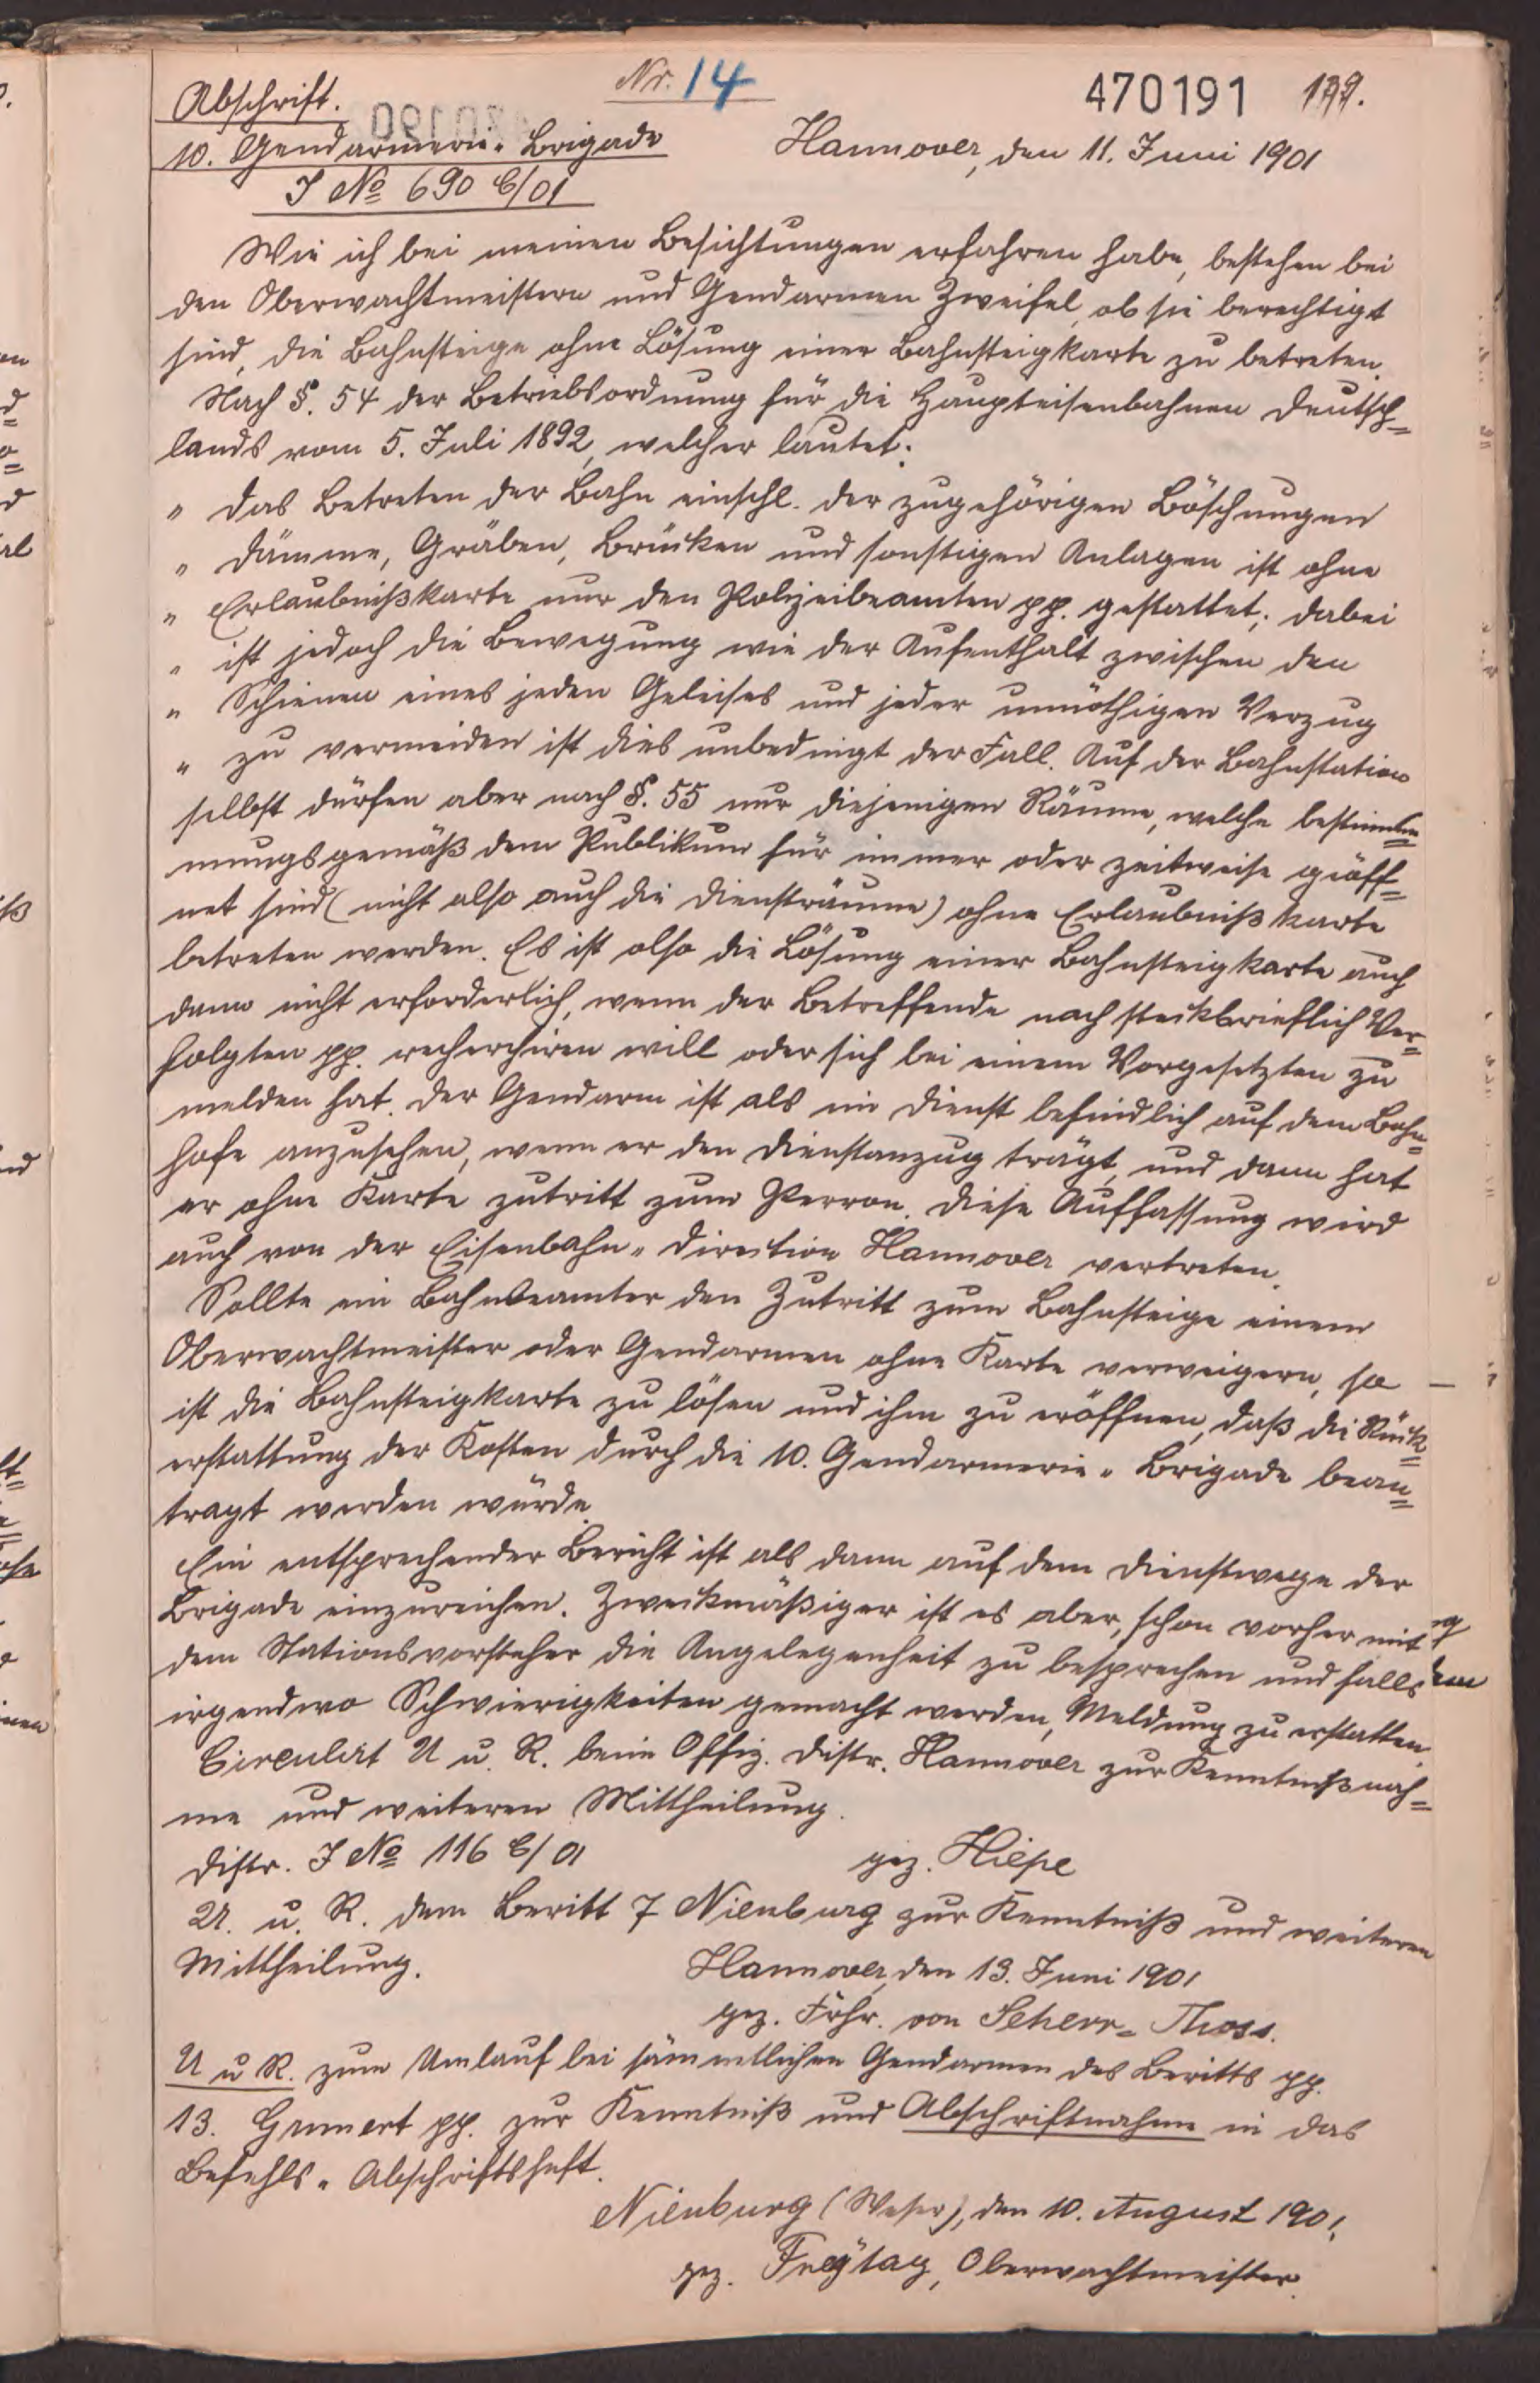 Nr. 14
470191 199.
Abschrift.
10. Gendarmerie-Brigade
Hannover, den 11. Juni 1901
J No 690 6/01
Wie ich bei meinen Besichtungen erfahren habe, bestehen bei
den Oberwachtmeistern und Gendarmen Zweifel, ob sie berechtigt
sind, die Bahnsteige ohne Lösung einer Bahnsteigkarte zu betreten.
Nach §. 54 der Betriebsordnung für die Haupteisenbahnen Deutsch=
lands vom 5. Juli 1892, welcher lautet:
" Das Betreten der Bahn einschl. der zugehörigen Böschungen
" Dämme, Gräben, Brücken und sonstigen Anlagen ist ohne
" Erlaubnißkarte nur den Polizeibeamten pp. gestattet; dabei
" ist jedoch die Bewegung wie der Aufenthalt zwischen den
" Schienen eines jeden Geleises und jeder unnöthigen Verzug
" zu vermeiden ist dies unbedingt der Fall. Auf der Bahnstation
selbst dürfen aber nach §. 55 nur diejenigen Räume, welche bestimm=
mungsgemäß dem Publikum für immer oder zeitweise geöff=
net sind (nicht also auch die Diensträume) ohne Erlaubnißkarte
betreten werden. Es ist also die Lösung einer Bahnsteigkarte auch
dann nicht erforderlich, wenn der Betreffende nach steckbrieflich Ver=
folgten pp. recherchiren will oder sich bei einem Vorgesetzten zu
melden hat. Der Gendarm ist als im Dienst befindlich auf dem Bahn=
hofe anzusehen, wenn er den Dienstanzug trägt, und dann hat
er ohne Karte zutritt zum Perron. Diese Auffassung wird
auch von der Eisenbahn-Direction Hannover vertreten.
Sollte ein Bahnbeamter den Zutritt zum Bahnsteige einem
Oberwachtmeister oder Gendarmen ohne Karte verweigern, so
ist die Bahnsteigkarte zu lösen und ihm zu eröffnen, daß die Rück=
erstattung der Kosten durch die 10. Gendarmerie-Brigade bean=
tragt werden würde.
Ein entsprechender Bericht ist als dann auf dem Dienstwege der
Brigade einzureichen. Zweckmäßiger ist es aber, schon vorher mit
dem Stationsvorsteher die Angelegenheit zu besprechen und falls
irgendwo Schwierigkeiten gemacht werden, Meldung zu erstatten.
Circulirt U u. R. beim Offiz. Distr. Hannover zur Kenntnißnah=
me und weiteren Mittheilung.
gez. Hiepe
Distr. J No 116 6/01
U. u. R. dem Beritt 7 Nienburg zur Kenntniß und weiteren
Mittheilung.
Hannover, den 13. Juni 1901
gez. Frhr. von Scherr-Thoss.
U u R. zum Umlauf bei sämmtlichen Gendarmen des Beritts pp.
13. Grunert pp. zur Kenntniß und Abschriftnahme in das
Befehls-Abschriftsheft.
Nienburg (Weser), den 10. August 1901.
gez. Freÿtag, Oberwachtmeister.